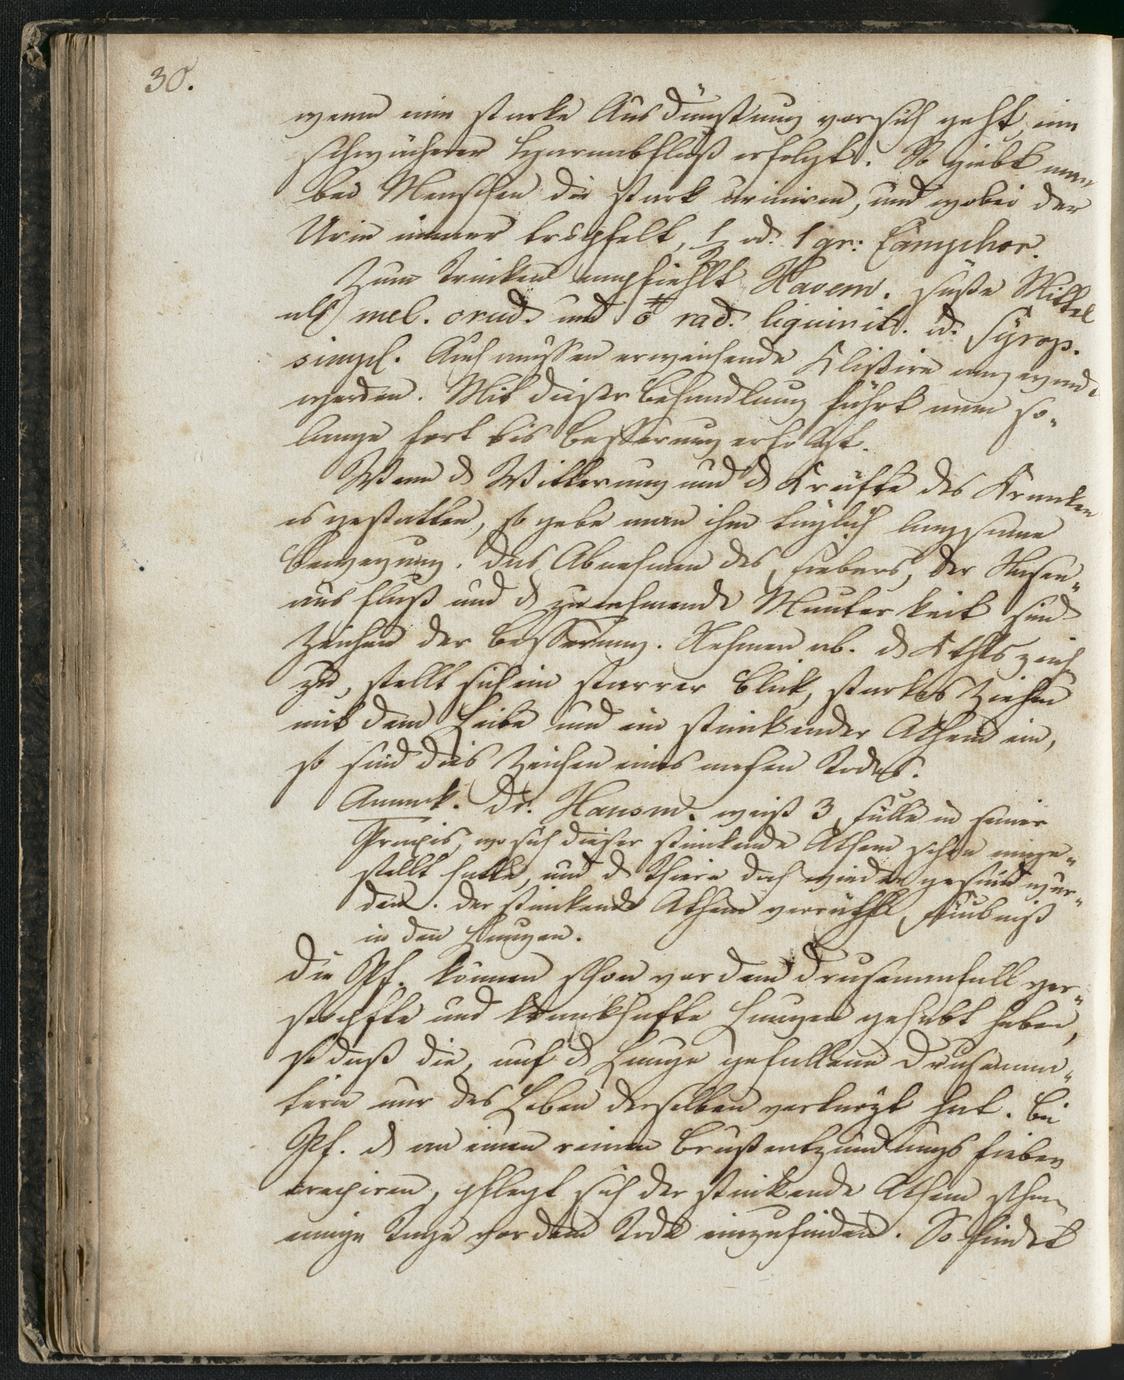 30.
wenn eine starke Ausdünstung vor sich geht, ein
schwächerer Harnabfluß erfolgt. So giebt man
bei Menschen die stark uriniren, und wobei der
Urin immer tröpfelt, ½ od. 1 gr: Camphor.
Zum Trinken empfiehlt Havem. süße Mittel
als mel. crud. und rad. liquirit. od. Syrop.
simpl. Auch müssen erweichende Klistire angewend
werden. Mit dieser Behandlung fährt man so-
lange fort bis Besserung erfolgt.
Wenn d Witterung und d Kräfte des Kranken
es gestatten, so gebe man ihm täglich langsame
Bewegung. Das Abnehmen des Fiebers, der Nasen-
ausfluß und d zunehmende Munterkeit sind
Zeichen der Besserung. Nehmen ab. d Kthtszeich
zu, stellt sich ein starrer Blick, starkes Ziehen
mit dem Leibe und ein stinkender Athem ein,
so sind dies Zeichen eines nahen Todes.
Anmerk. Dr. Havem. weiß 3 Fälle in seiner
Praxis, wo sich dieser stinkende Athem schon einge-
stellt hatte, und d Thiere doch wieder gesund wur-
den. Der stinkende Athem verräth Fäulniß
in den Lungen.
Die Pf. können schon vor dem Drusenanfall ver-
stopfte und krankhafte Lungen gehabt haben,
so daß die, auf d Lunge gefallene Drusenma-
terie nur das Leben derselben verkürzt hat. Bei
Pf. d an einem reinen Brustentzündungsfieber
crepiren, pflegt sich der stinkende Athem schon
einige Tage vor dem Tode einzufinden. So findet